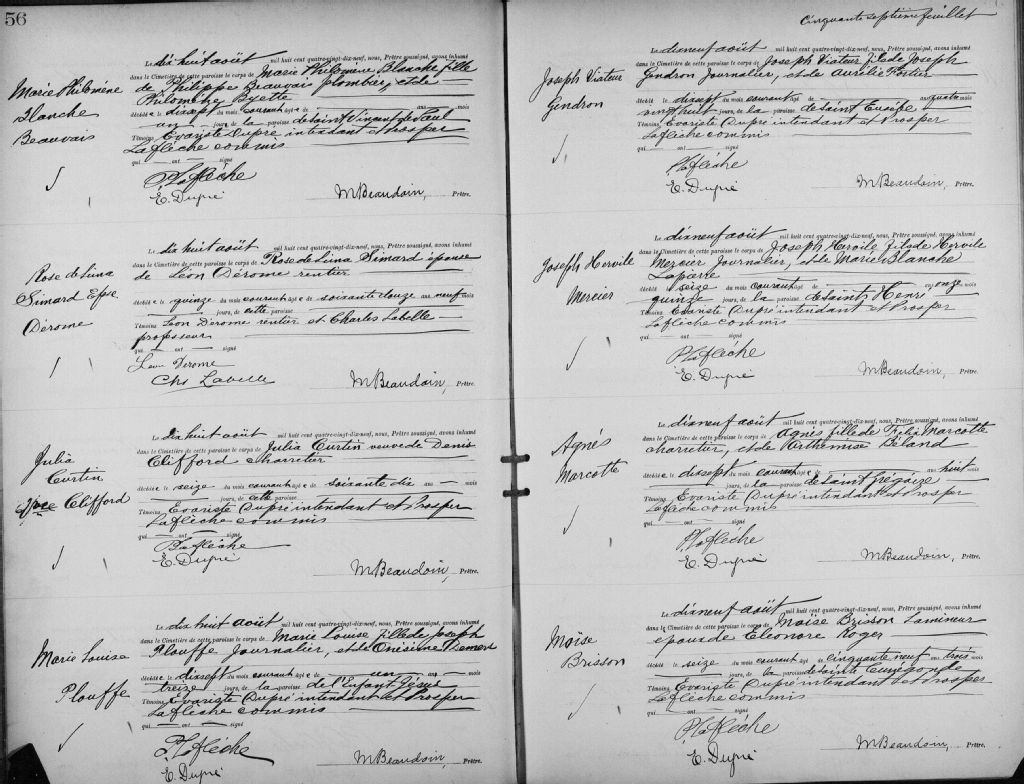 56
Marie Philomène
Blanche
Beauvais
Le dix huit août mil huit cent quatre-vingt-dix-neuf, nous, Prêtre soussigné, avons inhumé
dans le Cimetière de cette paroisse le corps de Marie Philomène Blanche fille
de Philippe Beauvais plombier, et de
Philomène
décédée le dixsept du mois courant âgée de ans mois
un jours, de la paroisse de Saint Vincent de Paul
Témoins Evariste Dupré intendant et Prosper
Laflèche commis
qui ont signé
P. Laflèche
E. Dupré
M Beaudoin, Prêtre.
Rose de Lima
Simard Epse
Dérome
Le dix huit août mil huit cent quatre-vingt-dix-neuf, nous, Prêtre soussigné, avons inhumé
dans le Cimetière de cette paroisse le corps de Rose de Lima Simard épouse
de Léon Dérome rentier
décédée le quinze du mois courant âgée de soixante douze ans neuf mois
jours, de cette paroisse
Témoins Léon Dérome rentier et Charles Labelle
professeur
qui ont signé
Leon Derome
Chs Labelle
M Beaudoin, Prêtre.
Julia
Curtin
Clifford
Le dix huit août mil huit cent quatre-vingt-dix-neuf, nous, Prêtre soussigné, avons inhumé
dans le Cimetière de cette paroisse le corps de Julia Curtin veuve de Denis
Clifford charretier
décédée le seize du mois courant âgée de soixante dix ans mois
jours, de cette paroisse
Témoins Evariste Dupré intendant et Prosper
Laflèche commis
qui ont signé
P. Laflèche
E. Dupré
M Beaudoin, Prêtre.
Marie Louise
Plouffe
Le dix huit août mil huit cent quatre-vingt-dix-neuf, nous, Prêtre soussigné, avons inhumé
dans le Cimetière de cette paroisse le corps de Marie Louise fille de Joseph
Plouffe journalier, et de Onésime
décédée le dixsept du mois courant âgée de un ans mois
treize jours, de la paroisse de l'Enfant Jésus
Témoins Evariste Dupré intendant et Prosper
Laflèche commis
qui ont signé
P. Laflèche
E. Dupré
M Beaudoin, Prêtre.
Cinquante septième feuillet
Joseph Viateur
Gendron
Le dixneuf août mil huit cent quatre-vingt-dix-neuf, nous, Prêtre soussigné, avons inhumé
dans le Cimetière de cette paroisse le corps de Joseph Viateur fils de Joseph
Gendron Journalier, et de Aurélie Fortier
décédé le dixsept du mois courant âgé de ans quatre mois
vingt huit jours, de la paroisse de Saint Eusèbe
Témoins Evariste Dupré intendant et Prosper
Laflèche commis
qui ont signé
P. Laflèche
E. Dupré
M Beaudoin, Prêtre.
Joseph Hervile
Mercier
Le dixneuf août mil huit cent quatre-vingt-dix-neuf, nous, Prêtre soussigné, avons inhumé
dans le Cimetière de cette paroisse le corps de Joseph fils de Hervile
Mercier Journalier, et de Marie Blanche
Lapierre
décédé le seize du mois courant âgé de ans onze mois
quinze jours, de la paroisse de Saint Henri
Témoins Evariste Dupré intendant et Prosper
Laflèche commis
qui ont signé
P. Laflèche
E. Dupré
M Beaudoin, Prêtre.
Agnès
Marcotte
Le dixneuf août mil huit cent quatre-vingt-dix-neuf, nous, Prêtre soussigné, avons inhumé
dans le Cimetière de cette paroisse le corps de Agnès fille de Félix Marcotte
charretier, et de Arthemise Béland
décédée le dixsept du mois courant âgée de ans huit mois
jours, de la paroisse de Saint Grégoire
Témoins Evariste Dupré intendant et Prosper
Laflèche commis
qui ont signé
P. Laflèche
E. Dupré
M Beaudoin, Prêtre.
Moïse
Brisson
Le dixneuf août mil huit cent quatre-vingt-dix-neuf, nous, Prêtre soussigné, avons inhumé
dans le Cimetière de cette paroisse le corps de Moïse Brisson Lamineur
époux de Eléonore Roger
décédé le seize du mois courant âgé de cinquante neuf ans trois mois
jours, de la paroisse de Sainte Cunégonde
Témoins Evariste Dupré intendant et Prosper
Laflèche commis
qui ont signé
P. Laflèche
E. Dupré
M Beaudoin, Prêtre.